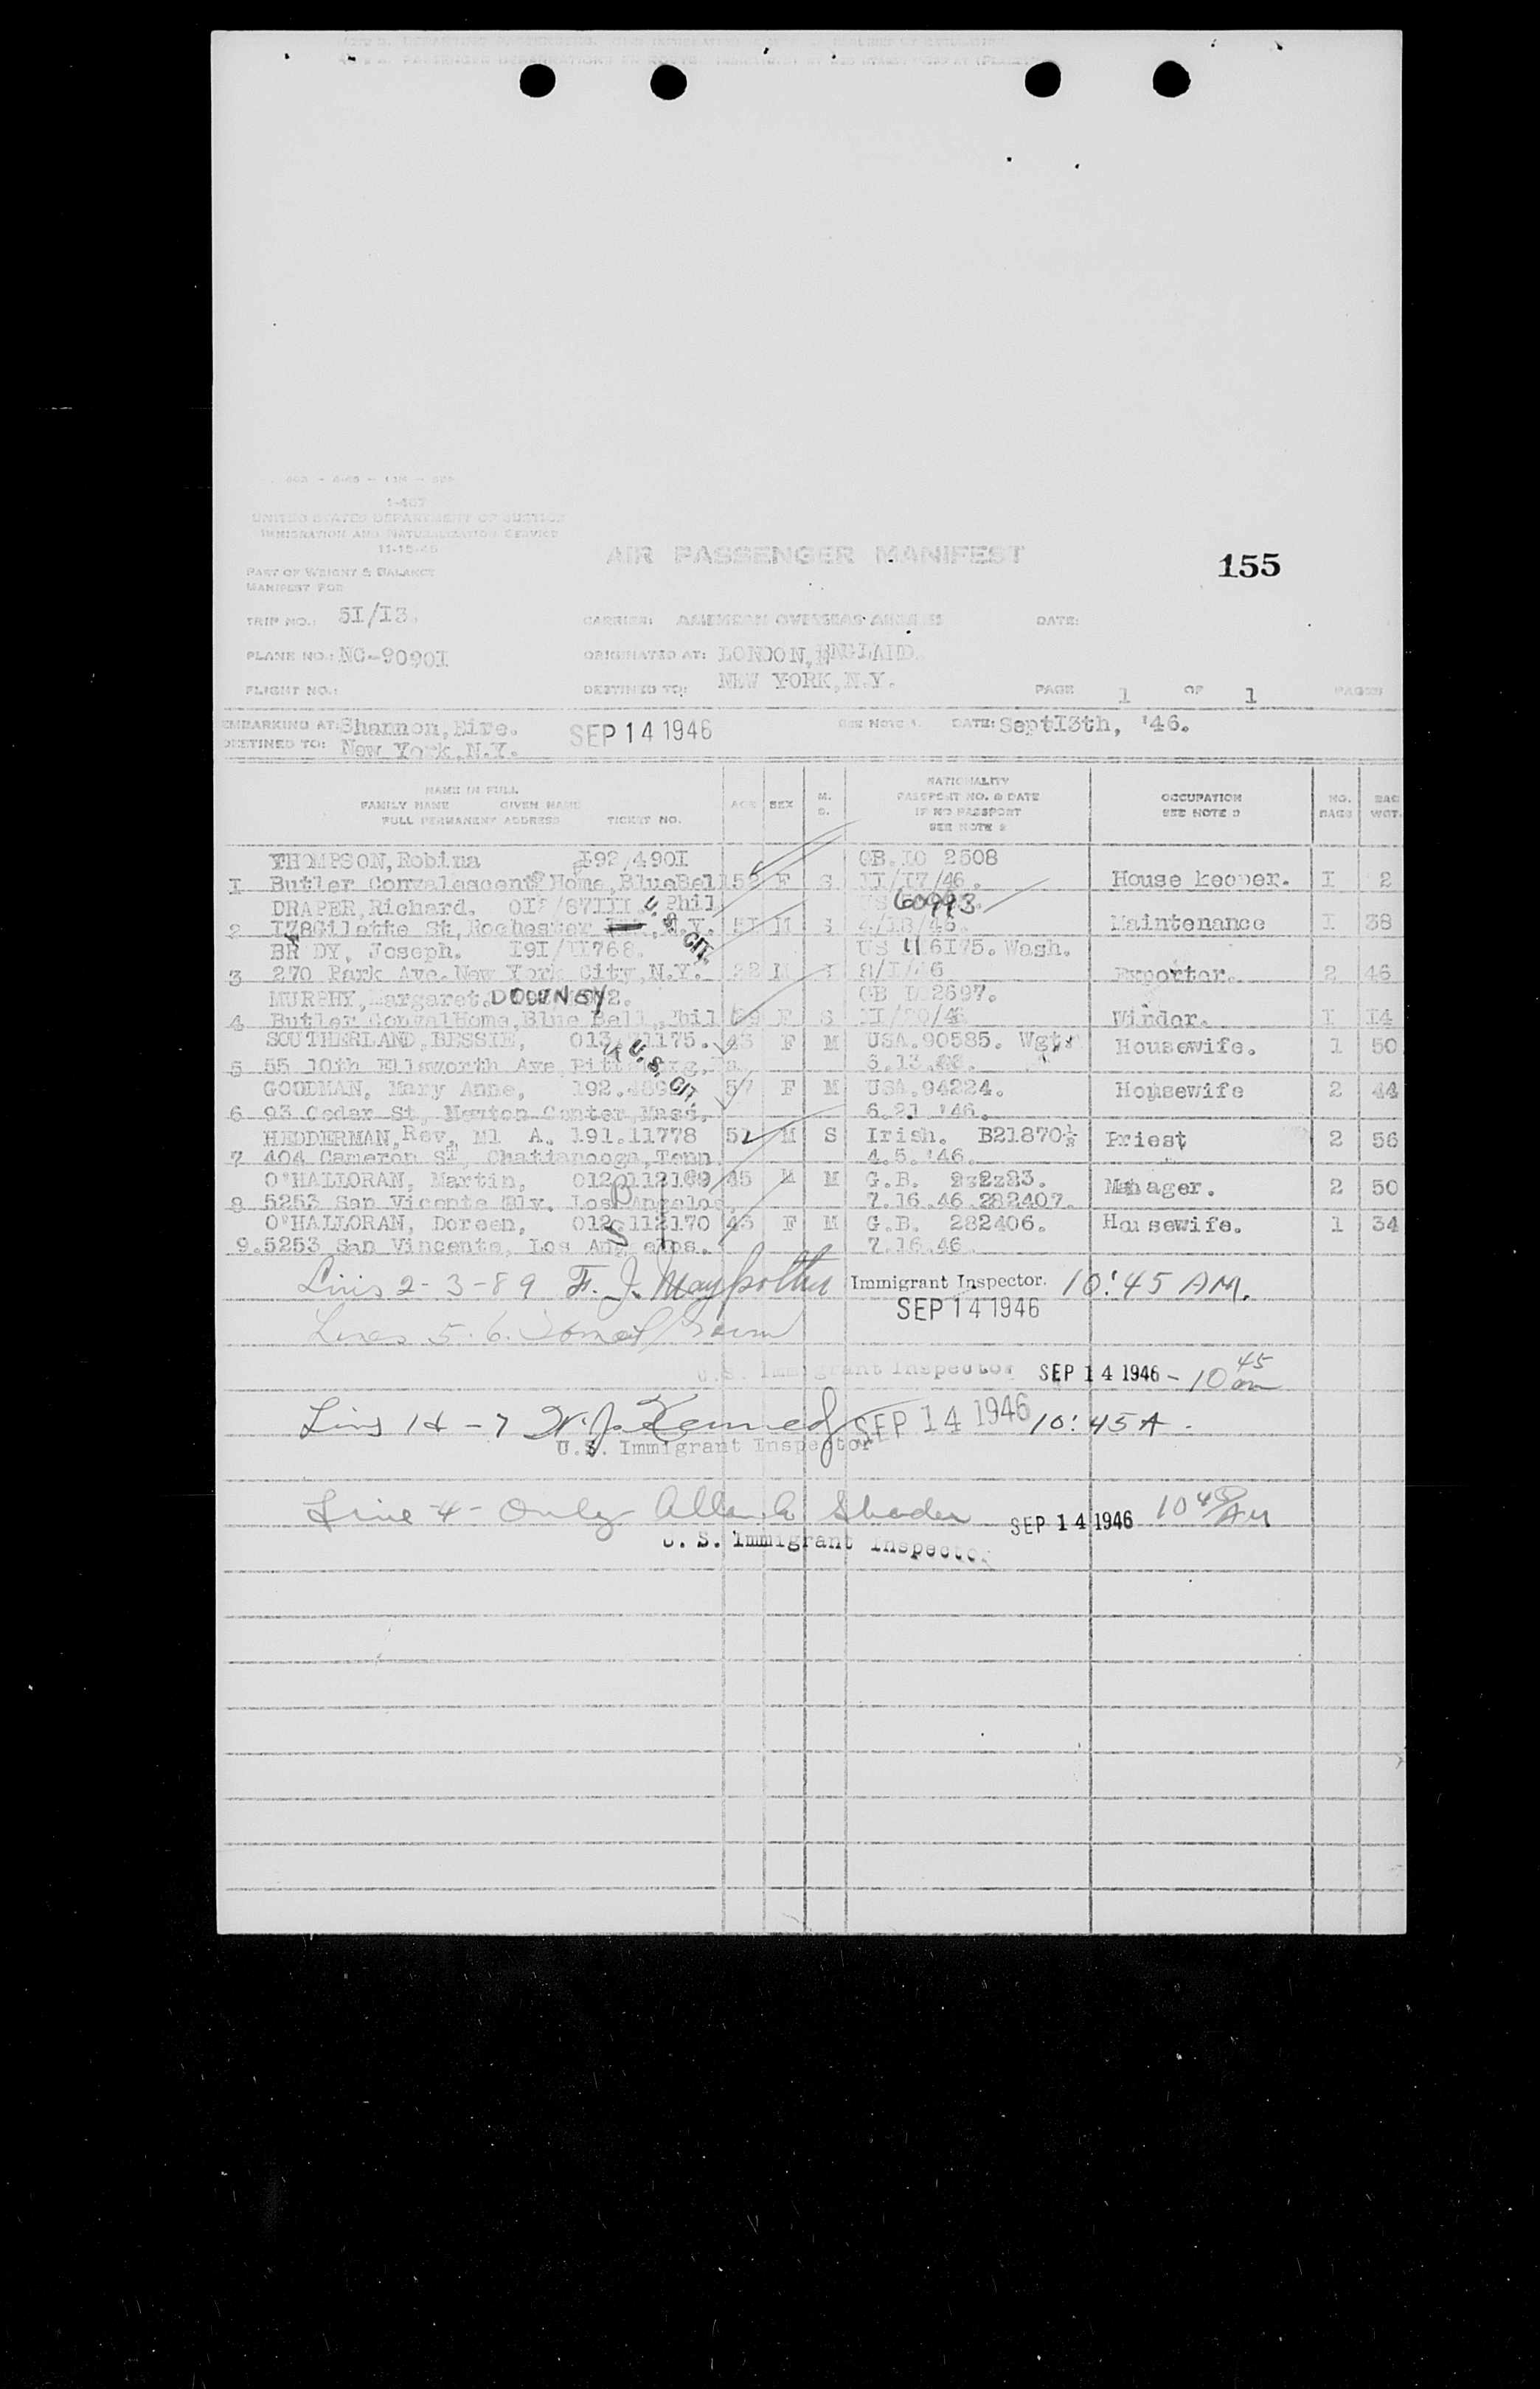 I-407
UNITED STATES DEPARTMENT OF JUSTICE
IMMIGRATION AND NATURALIZATION SERVICE
11-15-45
AIR PASSENGER MANIFEST
155
PART OF WEIGHT & BALANCE
MANIFEST FOR
TRIP NO.: 5I/I3. CARRIER: AMERICAN OVERSEAS AIRLINES DATE:
PLANE NO.: NC-9090I ORIGINATED AT: LONDON, ENGLAND.
FLIGHT NO.: DESTINED TO: NEW YORK, N.Y. PAGE 1 OF 1 PAGES
EMBARKING AT: Shannon, Eire. SEP 14 1946 SEE NOTE 1. DATE: SeptI3th, '46.
DESTINED TO: New York, N.Y.
NAME IN FULL
FAMILY NAME GIVEN NAME
FULL PERMANENT ADDRESS TICKET NO.
AGE SEX M. S. NATIONALITY PASSPORT NO. & DATE IF NO PASSPORT SEE NOTE 2 OCCUPATION SEE NOTE 3 NO. BAGS BAG WGT.
THOMPSON, Robina I92/490I GB. IO 2508
1 Butler Convalescent Home, BlueBell F II/I7/46. House keeper. I 2
DRAPER, Richard. Phil US 60993
2 Gilette St, Rochester N.Y. 51 M S 4/18/46. Maintenance I 38
U.S. CIT.
BR DY, Joseph. I9I/II768. US 116I75. Wash.
3 270 Park Ave. New York City, N.Y. 22 M 8/I/46 Exporter. 2 46
MURPHY, Margaret. DOWNEY 2. GB 2697.
4 Butler ConvalHome, Blue Bell, Phil F S Windor. I 14
SOUTHERLAND, BESSIE, 43 F M USA. 90585. Housewife. 1 50
5 55 10th Ellsworth Ave, 6.13.
U.S. CIT.
GOODMAN, Mary Anne, 57 F M USA. 94224. Housewife 2 44
6 93 Cedar St, Newton Center, Mass, 6.21 '46.
HEDDERMAN, Rev, Ml A. 191.11778 M S Irish. B21870 Priest 2 56
7 404 Cameron St, Chattanooga, Tenn. 4.5.'46.
O'HALLORAN, Martin, 45 M M G.B. Manager. 2 50
8 5253 San Vicente Blv. Los Angelos, 7.16.46. 282407.
O'HALLORAN, Doreen, 012.112170 43 F M G.B. 282406. Housewife. 1 34
9. 5253 San Vincente, Los Angelos. 7.16.46
Lines 2-3-8 9 F. J. Immigrant Inspector. 10:45 AM.
SEP 14 1946
Lines 5.6.
U.S. Immigrant Inspector SEP 14 1946 - 10 45 am
Lines 1 - 7 W. J. Kennedy SEP 14 1946 10:45 A.
U.S. Immigrant Inspector
Line -4- Only SEP 14 1946
U. S. Immigrant Inspector